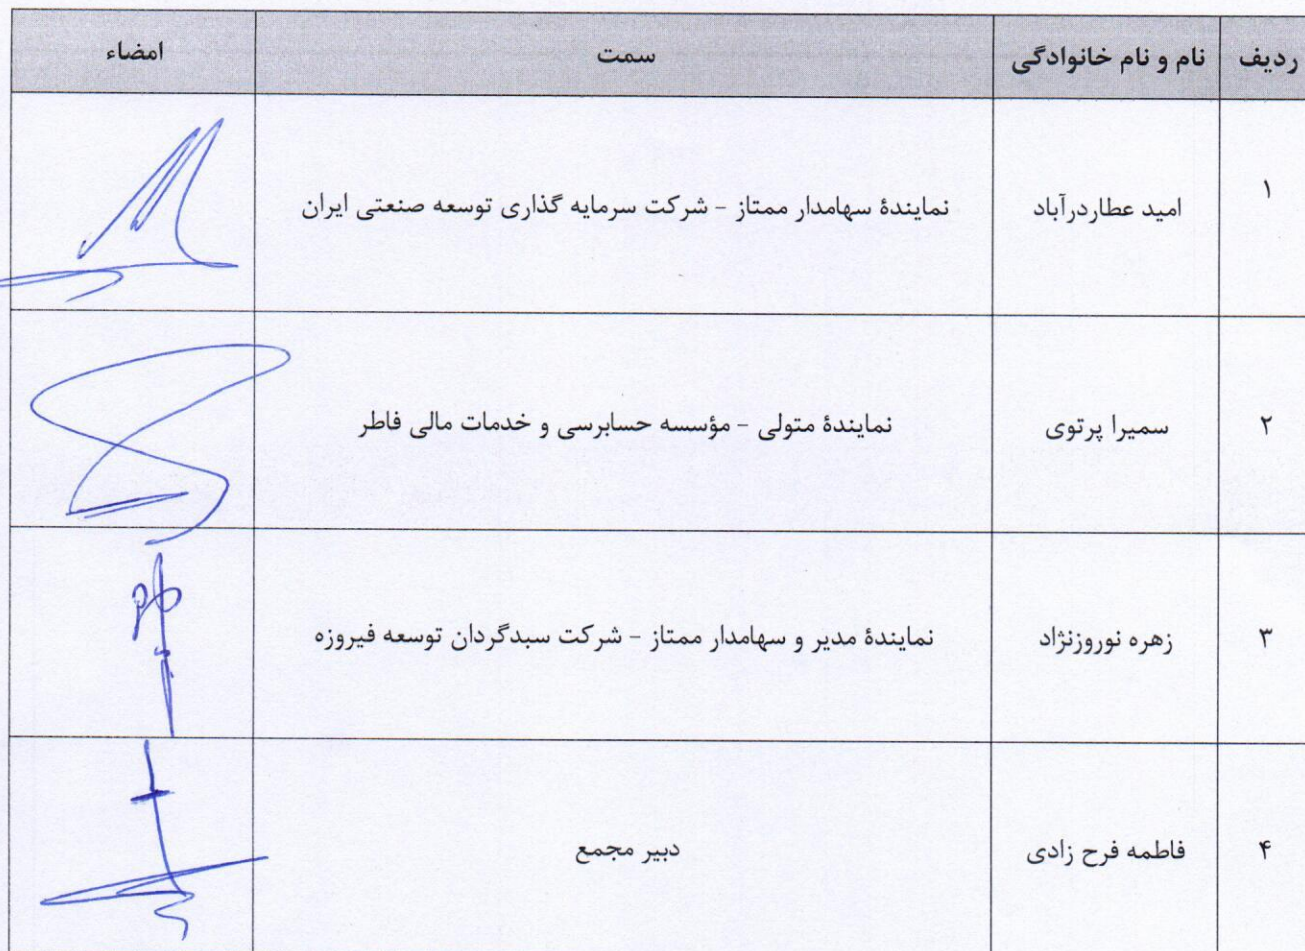 ردیف نام و نام خانوادگی سمت امضاء
۱ امید عطاردرآباد نمایندۀ سهامدار ممتاز - شرکت سرمایه گذاری توسعه صنعتی ایران
۲ سمیرا پرتوی نمایندۀ متولی - مؤسسه حسابرسی و خدمات مالی فاطر
۳ زهره نوروزنژاد نمایندۀ مدیر و سهامدار ممتاز - شرکت سبدگردان توسعه فیروزه
۴ فاطمه فرح زادی دبیر مجمع